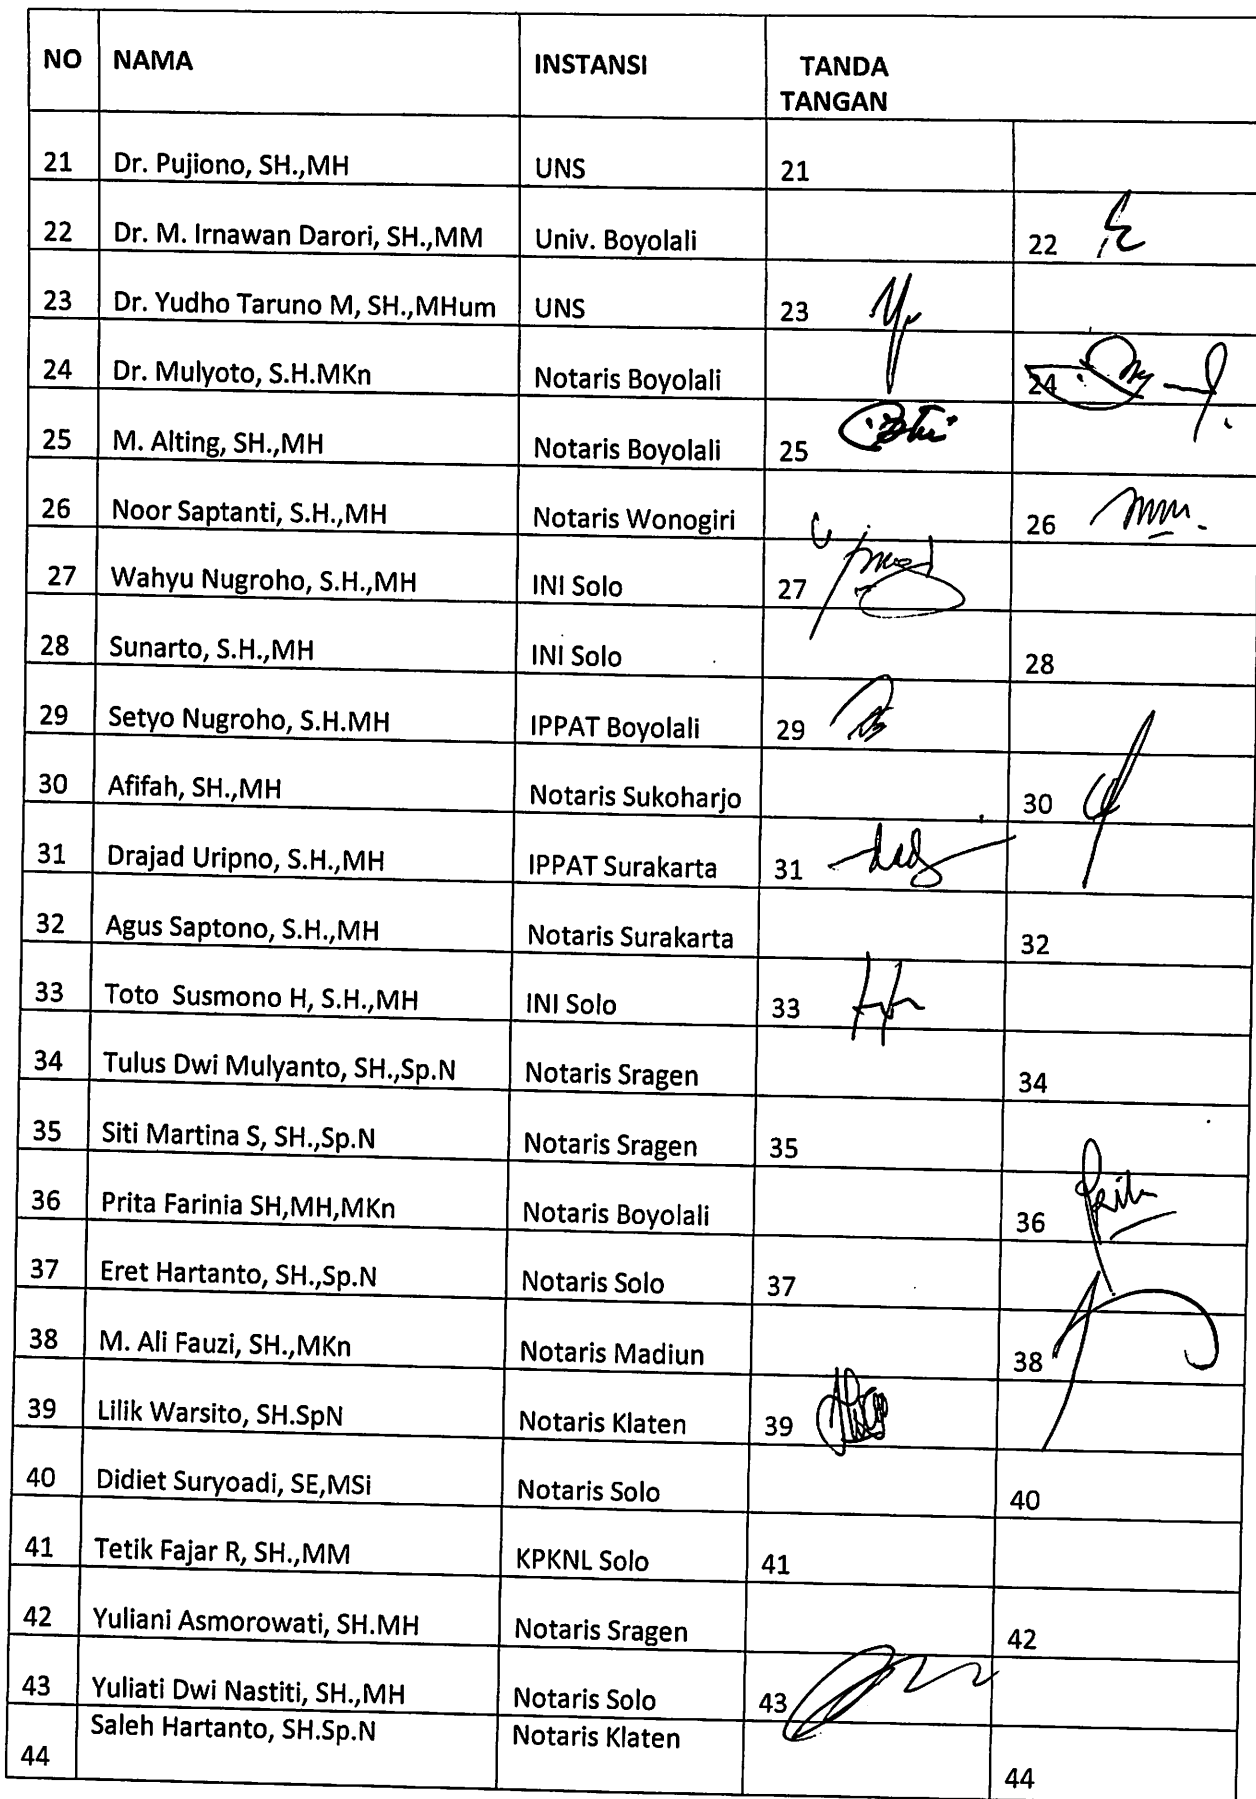 NO NAMA INSTANSI TANDA
TANGAN
21 Dr. Pujiono, SH.,MH UNS 21
22 Dr. M. Irnawan Darori, SH.,MM Univ. Boyolali 22
23 Dr. Yudho Taruno M, SH.,MHum UNS 23
24 Dr. Mulyoto, S.H.MKn Notaris Boyolali 24
25 M. Alting, SH.,MH Notaris Boyolali 25
26 Noor Saptanti, S.H.,MH Notaris Wonogiri 26
27 Wahyu Nugroho, S.H.,MH INI Solo 27
28 Sunarto, S.H.,MH INI Solo 28
29 Setyo Nugroho, S.H.MH IPPAT Boyolali 29
30 Afifah, SH.,MH Notaris Sukoharjo 30
31 Drajad Uripno, S.H.,MH IPPAT Surakarta 31
32 Agus Saptono, S.H.,MH Notaris Surakarta 32
33 Toto Susmono H, S.H.,MH INI Solo 33
34 Tulus Dwi Mulyanto, SH.,Sp.N Notaris Sragen 34
35 Siti Martina S, SH.,Sp.N Notaris Sragen 35
36 Prita Farinia SH,MH,MKn Notaris Boyolali 36
37 Eret Hartanto, SH.,Sp.N Notaris Solo 37
38 M. Ali Fauzi, SH.,MKn Notaris Madiun 38
39 Lilik Warsito, SH.SpN Notaris Klaten 39
40 Didiet Suryoadi, SE,MSi Notaris Solo 40
41 Tetik Fajar R, SH.,MM KPKNL Solo 41
42 Yuliani Asmorowati, SH.MH Notaris Sragen 42
43 Yuliati Dwi Nastiti, SH.,MH Notaris Solo 43
Saleh Hartanto, SH.Sp.N Notaris Klaten
44 44